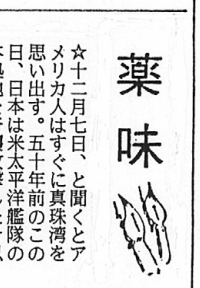 薬味
☆十二月七日、と聞くとア
メリカ人はすぐに真珠湾を
思い出す。五十年前のこの
日、日本は米太平洋艦隊の